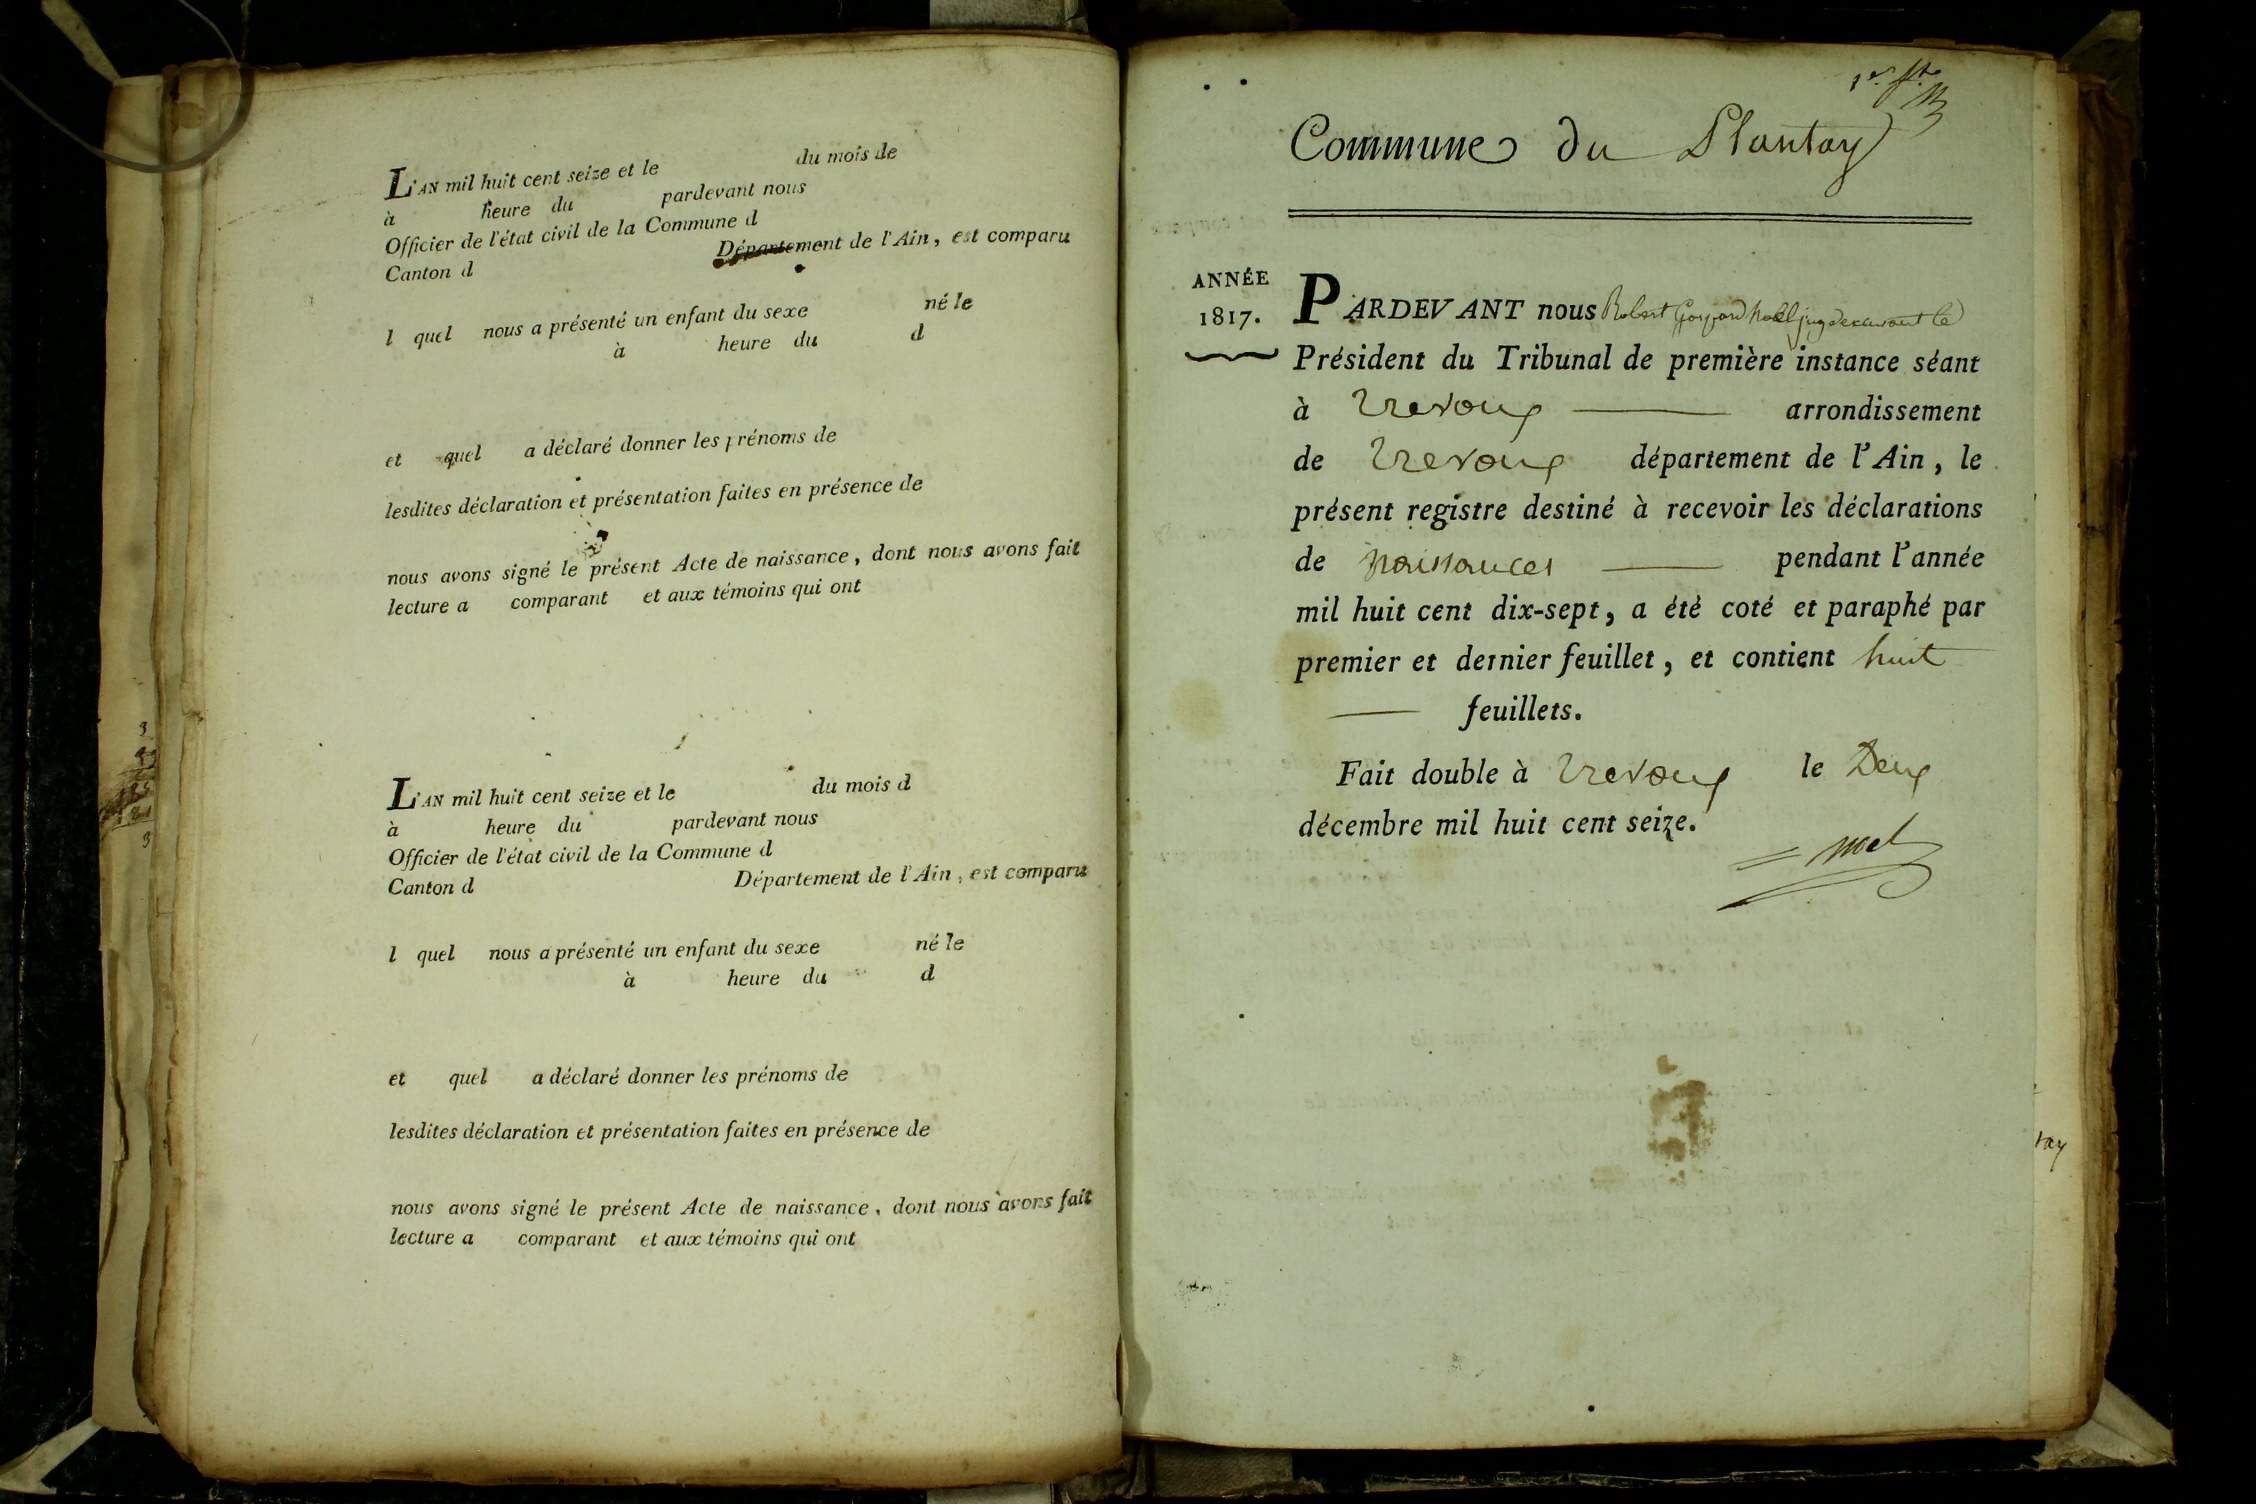 L'AN mil huit cent seize et le du mois de
à heure du pardevant nous
Officier de l'état civil de la Commune d
Canton d Département de l'Ain, est comparu
l quel nous a présenté un enfant du sexe né le
à heure du d
et quel a déclaré donner les prénoms de
lesdites déclaration et présentation faites en présence de
nous avons signé le présent Acte de naissance, dont nous avons fait
lecture a comparant et aux témoins qui ont
L'AN mil huit cent seize et le du mois d
à heure du pardevant nous
Officier de l'état civil de la Commune d
Canton d Département de l'Ain, est comparu
l quel nous a présenté un enfant du sexe né le
à heure du d
et quel a déclaré donner les prénoms de
lesdites déclaration et présentation faites en présence de
nous avons signé le présent Acte de naissance, dont nous avons fait
lecture a comparant et aux témoins qui ont
1er
Commune du Plantay
ANNÉE
1817.
PARDEVANT nous Robert Gaspard Noel juge le
Président du Tribunal de première instance séant
à Trevoux arrondissement
de Trevoux département de l'Ain, le
présent registre destiné à recevoir les déclarations
de naissances pendant l'année
mil huit cent dix-sept, a été coté et paraphé par
premier et dernier feuillet, et contient huit
feuillets.
Fait double à Trevoux le Deux
décembre mil huit cent seize.
Noel